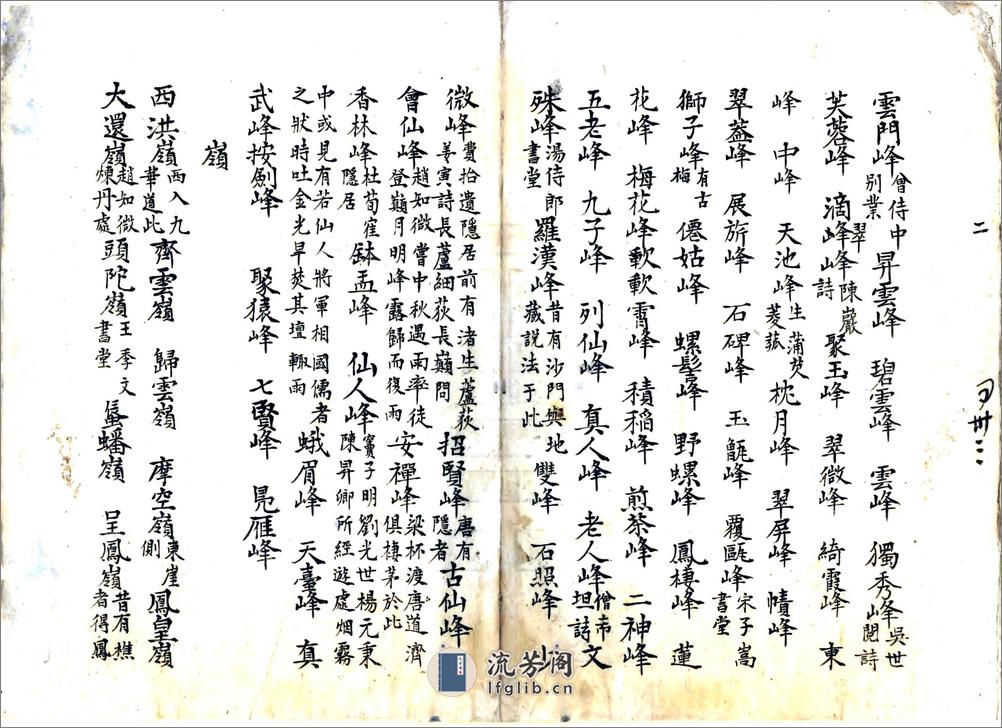 雲門峰曾侍中別業 昇雲峰 碧雲峰 雲峰 獨秀峰吳世閱詩
芙蓉峰 滴翠峰陳巖詩 聚玉峰 翠微峰 綺霞峰 東
峰 中峰 天池峰生蒲茭菱菰 枕月峰 翠屏峰 幘峰
翠蓋峰 展旂峰 石碑峰 玉甑峰 覆甌峰宋子嵩書堂
獅子峰有古梅 僊姑峰 螺髻峰 野螺峰 鳳棲峰 蓮
花峰 梅花峰 軟軟霄峰 積稻峰 煎茶峰 二神峰
五老峰 九子峰 列仙峰 真人峰 老人峰僧希坦詩 文
殊峰湯侍郎書堂 羅漢峰昔有沙門與地藏說法于此 雙峰 石照峰 少
微峰費拾遺隱居前有渚生蘆荻姜寅詩長蘆細荻長巔問 招賢峰唐有隱者 古仙峰
會仙峰趙知微嘗中秋遇雨率徒登巔月明峰露歸而復雨 安禪峰梁杯渡唐道濟俱棲茅於此
香林峰杜荀隺隱居 鉢盂峰 仙人峰竇子明劉光世楊元秉陳昇卿所經遊處烟霧
中或見有若仙人將軍相國儒者之狀時吐金光早焚其壇輙雨 蛾眉峰 天臺峰 真
武峰按劍峰 聚猿峰 七賢峰 鳧雁峰
嶺
西洪嶺西入九華道此 齊雲嶺 歸雲嶺 摩空嶺東崖側 鳳皇嶺
大還嶺趙知微煉丹處 頭陀嶺王季文書堂 蜑蟠嶺 呈鳳嶺昔有樵者得鳳
二
流芳阁
lfglib.cn